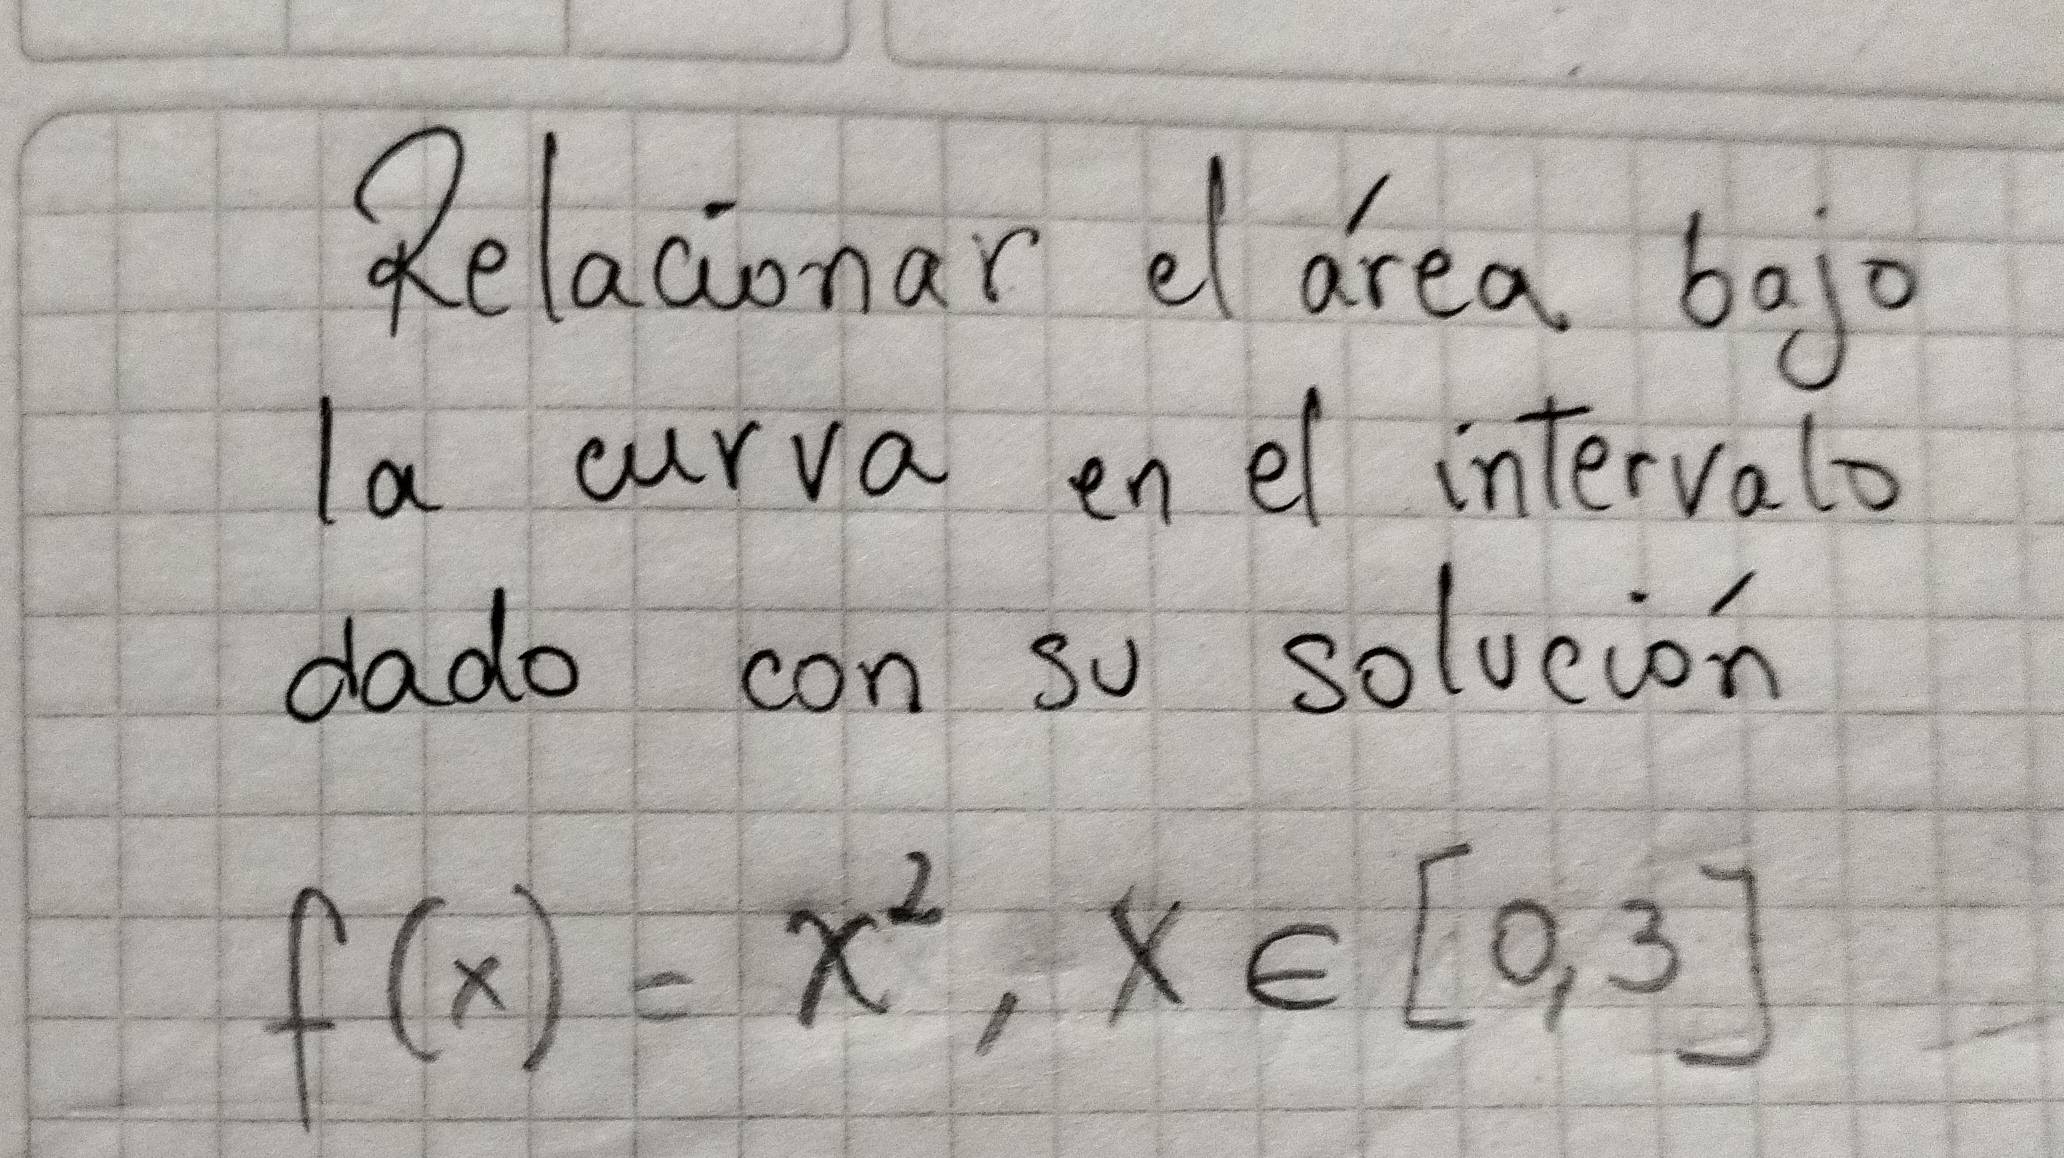 Relacionar el área bajo
la curva en el intervalo
dado con su solución
f(x) = x², x ∈ [0,3]